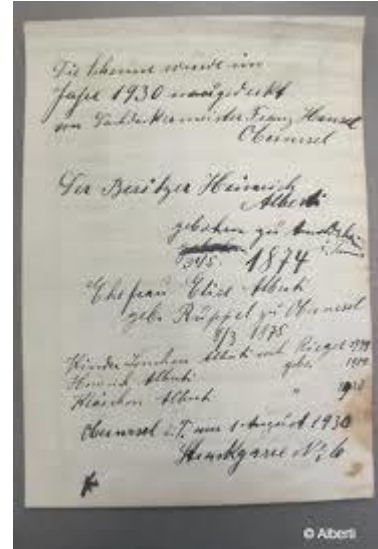 Die Scheune wurde im
Jahre 1930 neugedeckt
von Dachdeckermeister Franz Hensel
Oberursel
Der Besitzer Heinrich
Alberti
geboren zu
1874
Ehefrau Elise Alberti
geb. Ruppel zu Oberursel
9/3 1875
Kinder Alberti
Heinrich Alberti
Alberti "
Oberursel i. T. am 1 August 1930
Strackgasse No 6
© Alberti